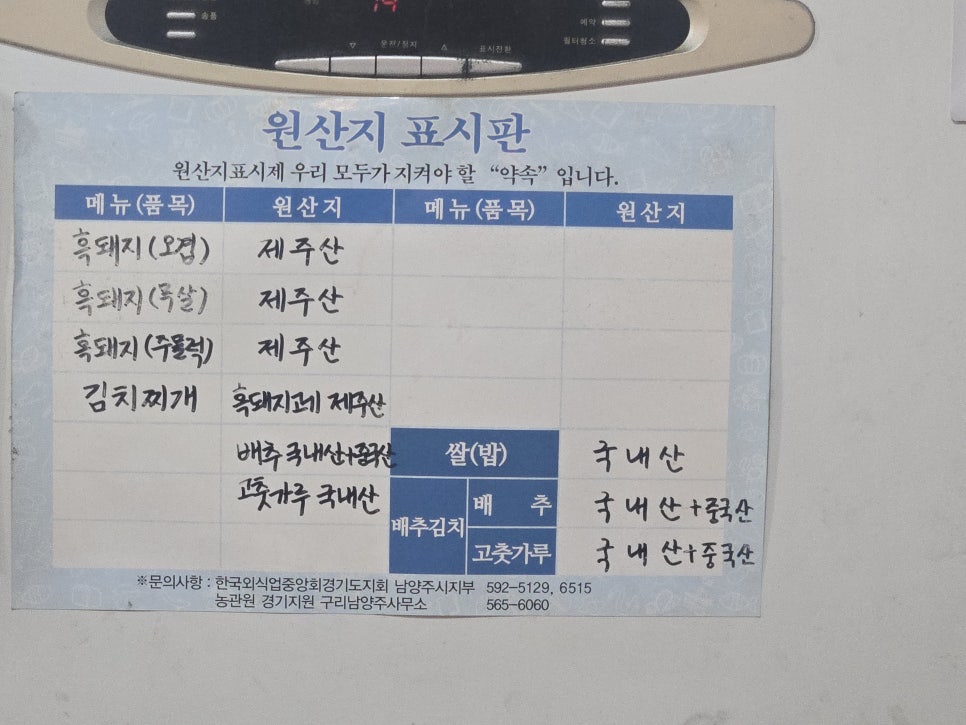 송풍
예약
운전/정지
표시전환
필터청소
원산지 표시판
원산지표시제 우리 모두가 지켜야 할 “약속” 입니다.
메뉴(품목) 원산지 메뉴(품목) 원산지
흑돼지(오겹) 제주산
흑돼지(목살) 제주산
흑돼지(주물럭) 제주산
김치찌개 흑돼지고기 제주산
배추 국내산+중국산 쌀(밥) 국내산
고춧가루 국내산 배추김치 배 추 국내산+중국산
고춧가루 국내산+중국산
※문의사항 : 한국외식업중앙회경기도지회 남양주시지부 592-5129, 6515
농관원 경기지원 구리남양주사무소 565-6060